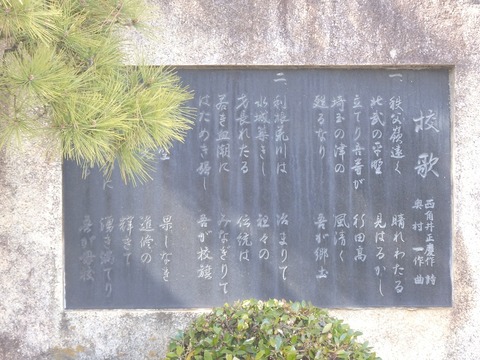 校歌
西角井正慶 作詩
奥村 一 作曲
一 秩父嶺遠く 晴れわたる
北武の平野 見はるかし
立てり吾等が 行田高
埼玉の津の 風清く
甦るなり 吾が郷土
二 利根荒川は 治まりて
水城築きし 祖々の
才長れたる 伝統は
若き血潮に みなぎりて
はためき揚し 吾が校旗
果しなき
道途の
輝きて
に 湧き満てり
吾が母校